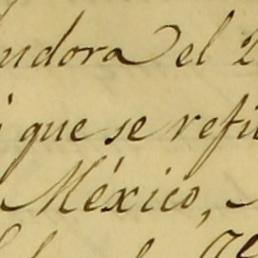 udora el 2
que se refi
México,